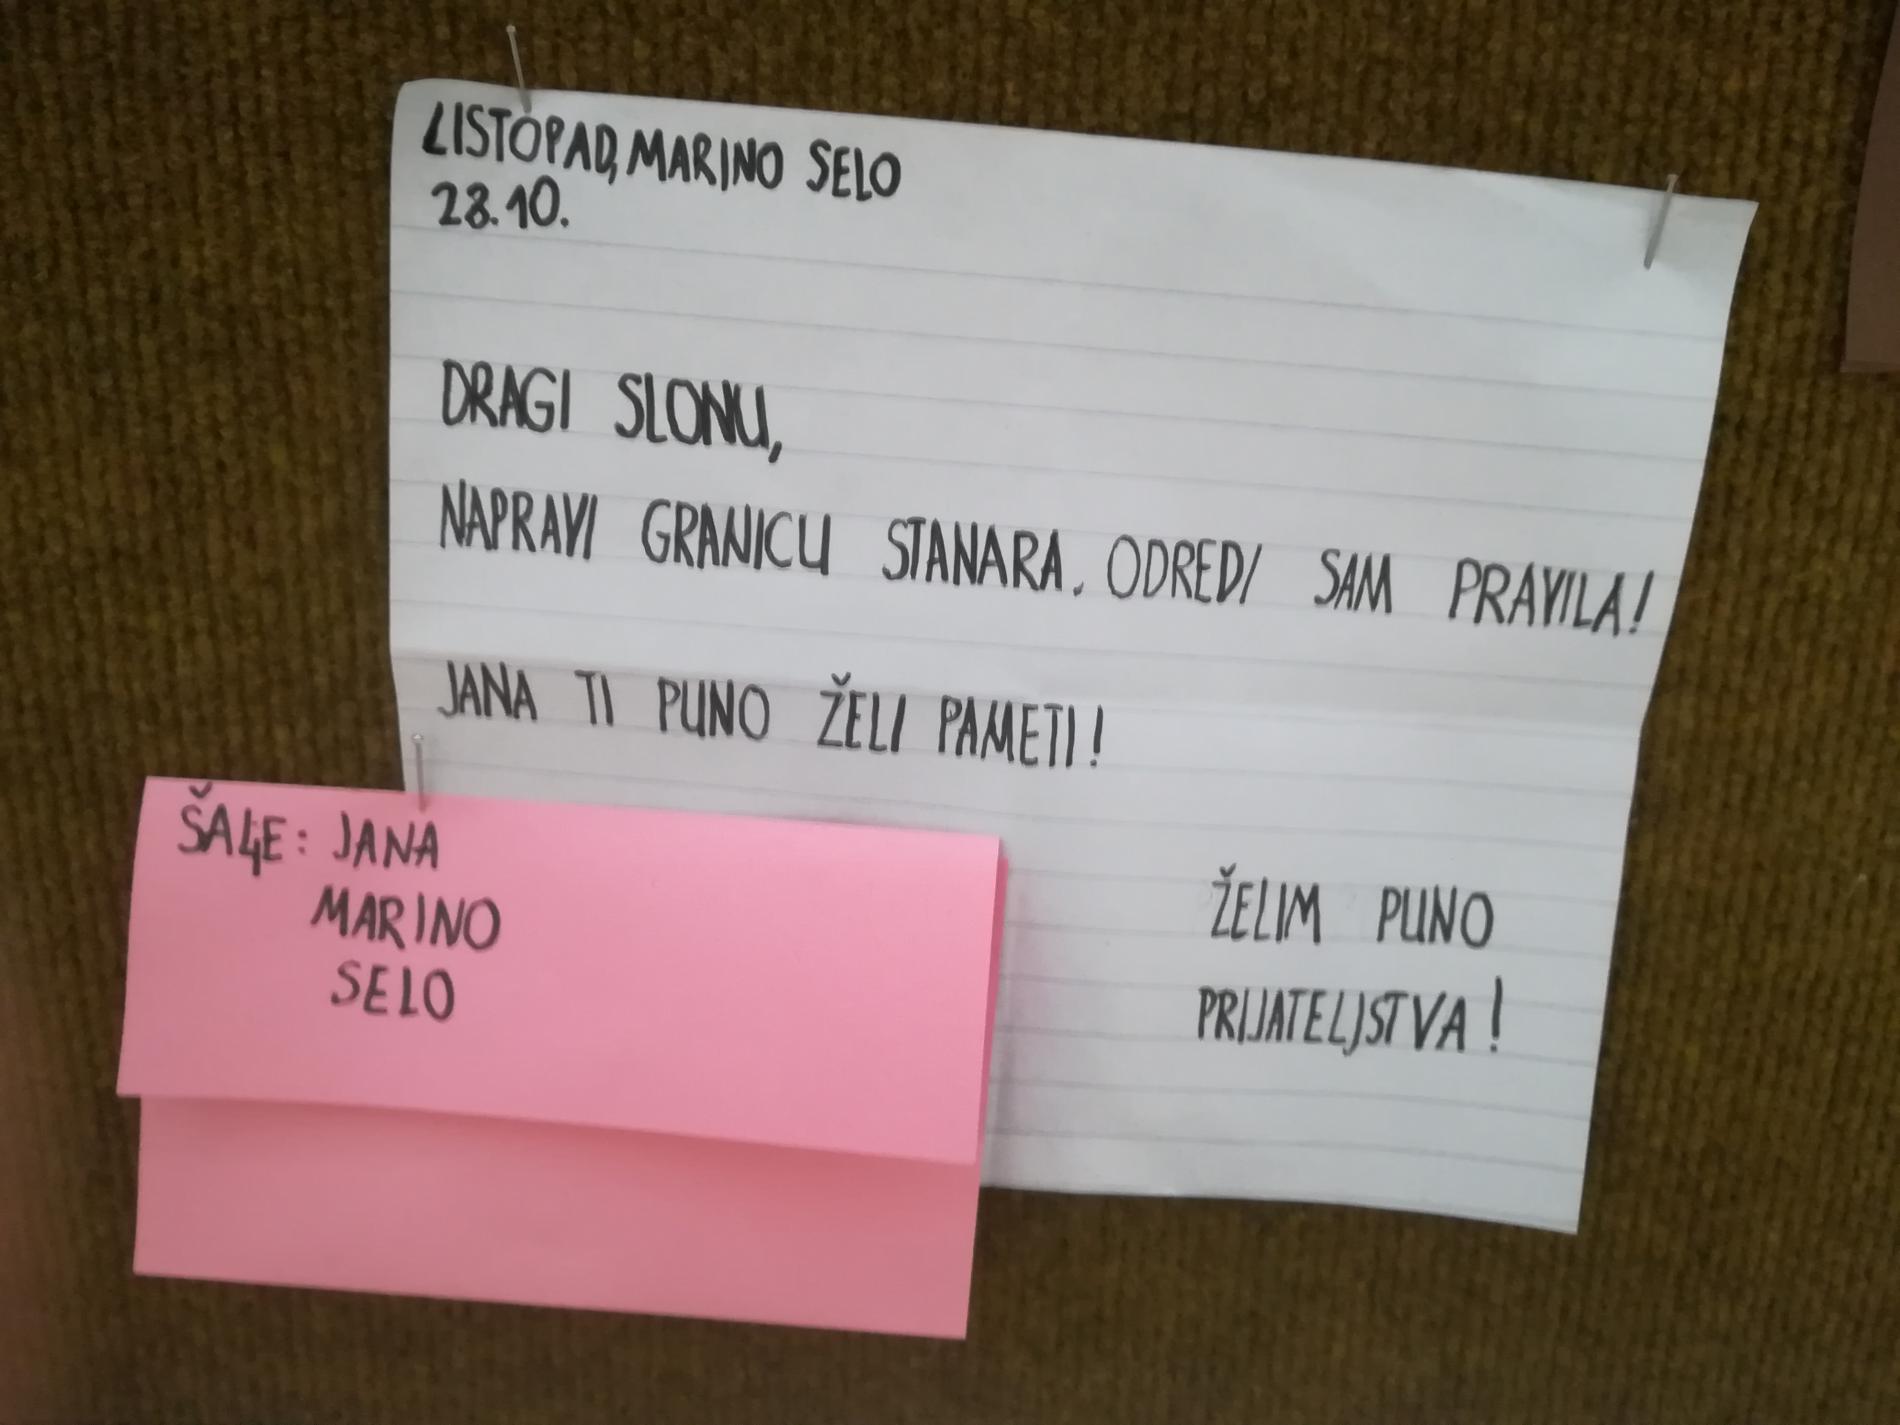 LISTOPAD, MARINO SELO
28.10.
DRAGI SLONU,
NAPRAVI GRANICU STANARA. ODREDI SAM PRAVILA!
JANA TI PUNO ŽELI PAMETI!
ŽELIM PUNO
PRIJATELJSTVA!
ŠALJE: JANA
MARINO
SELO